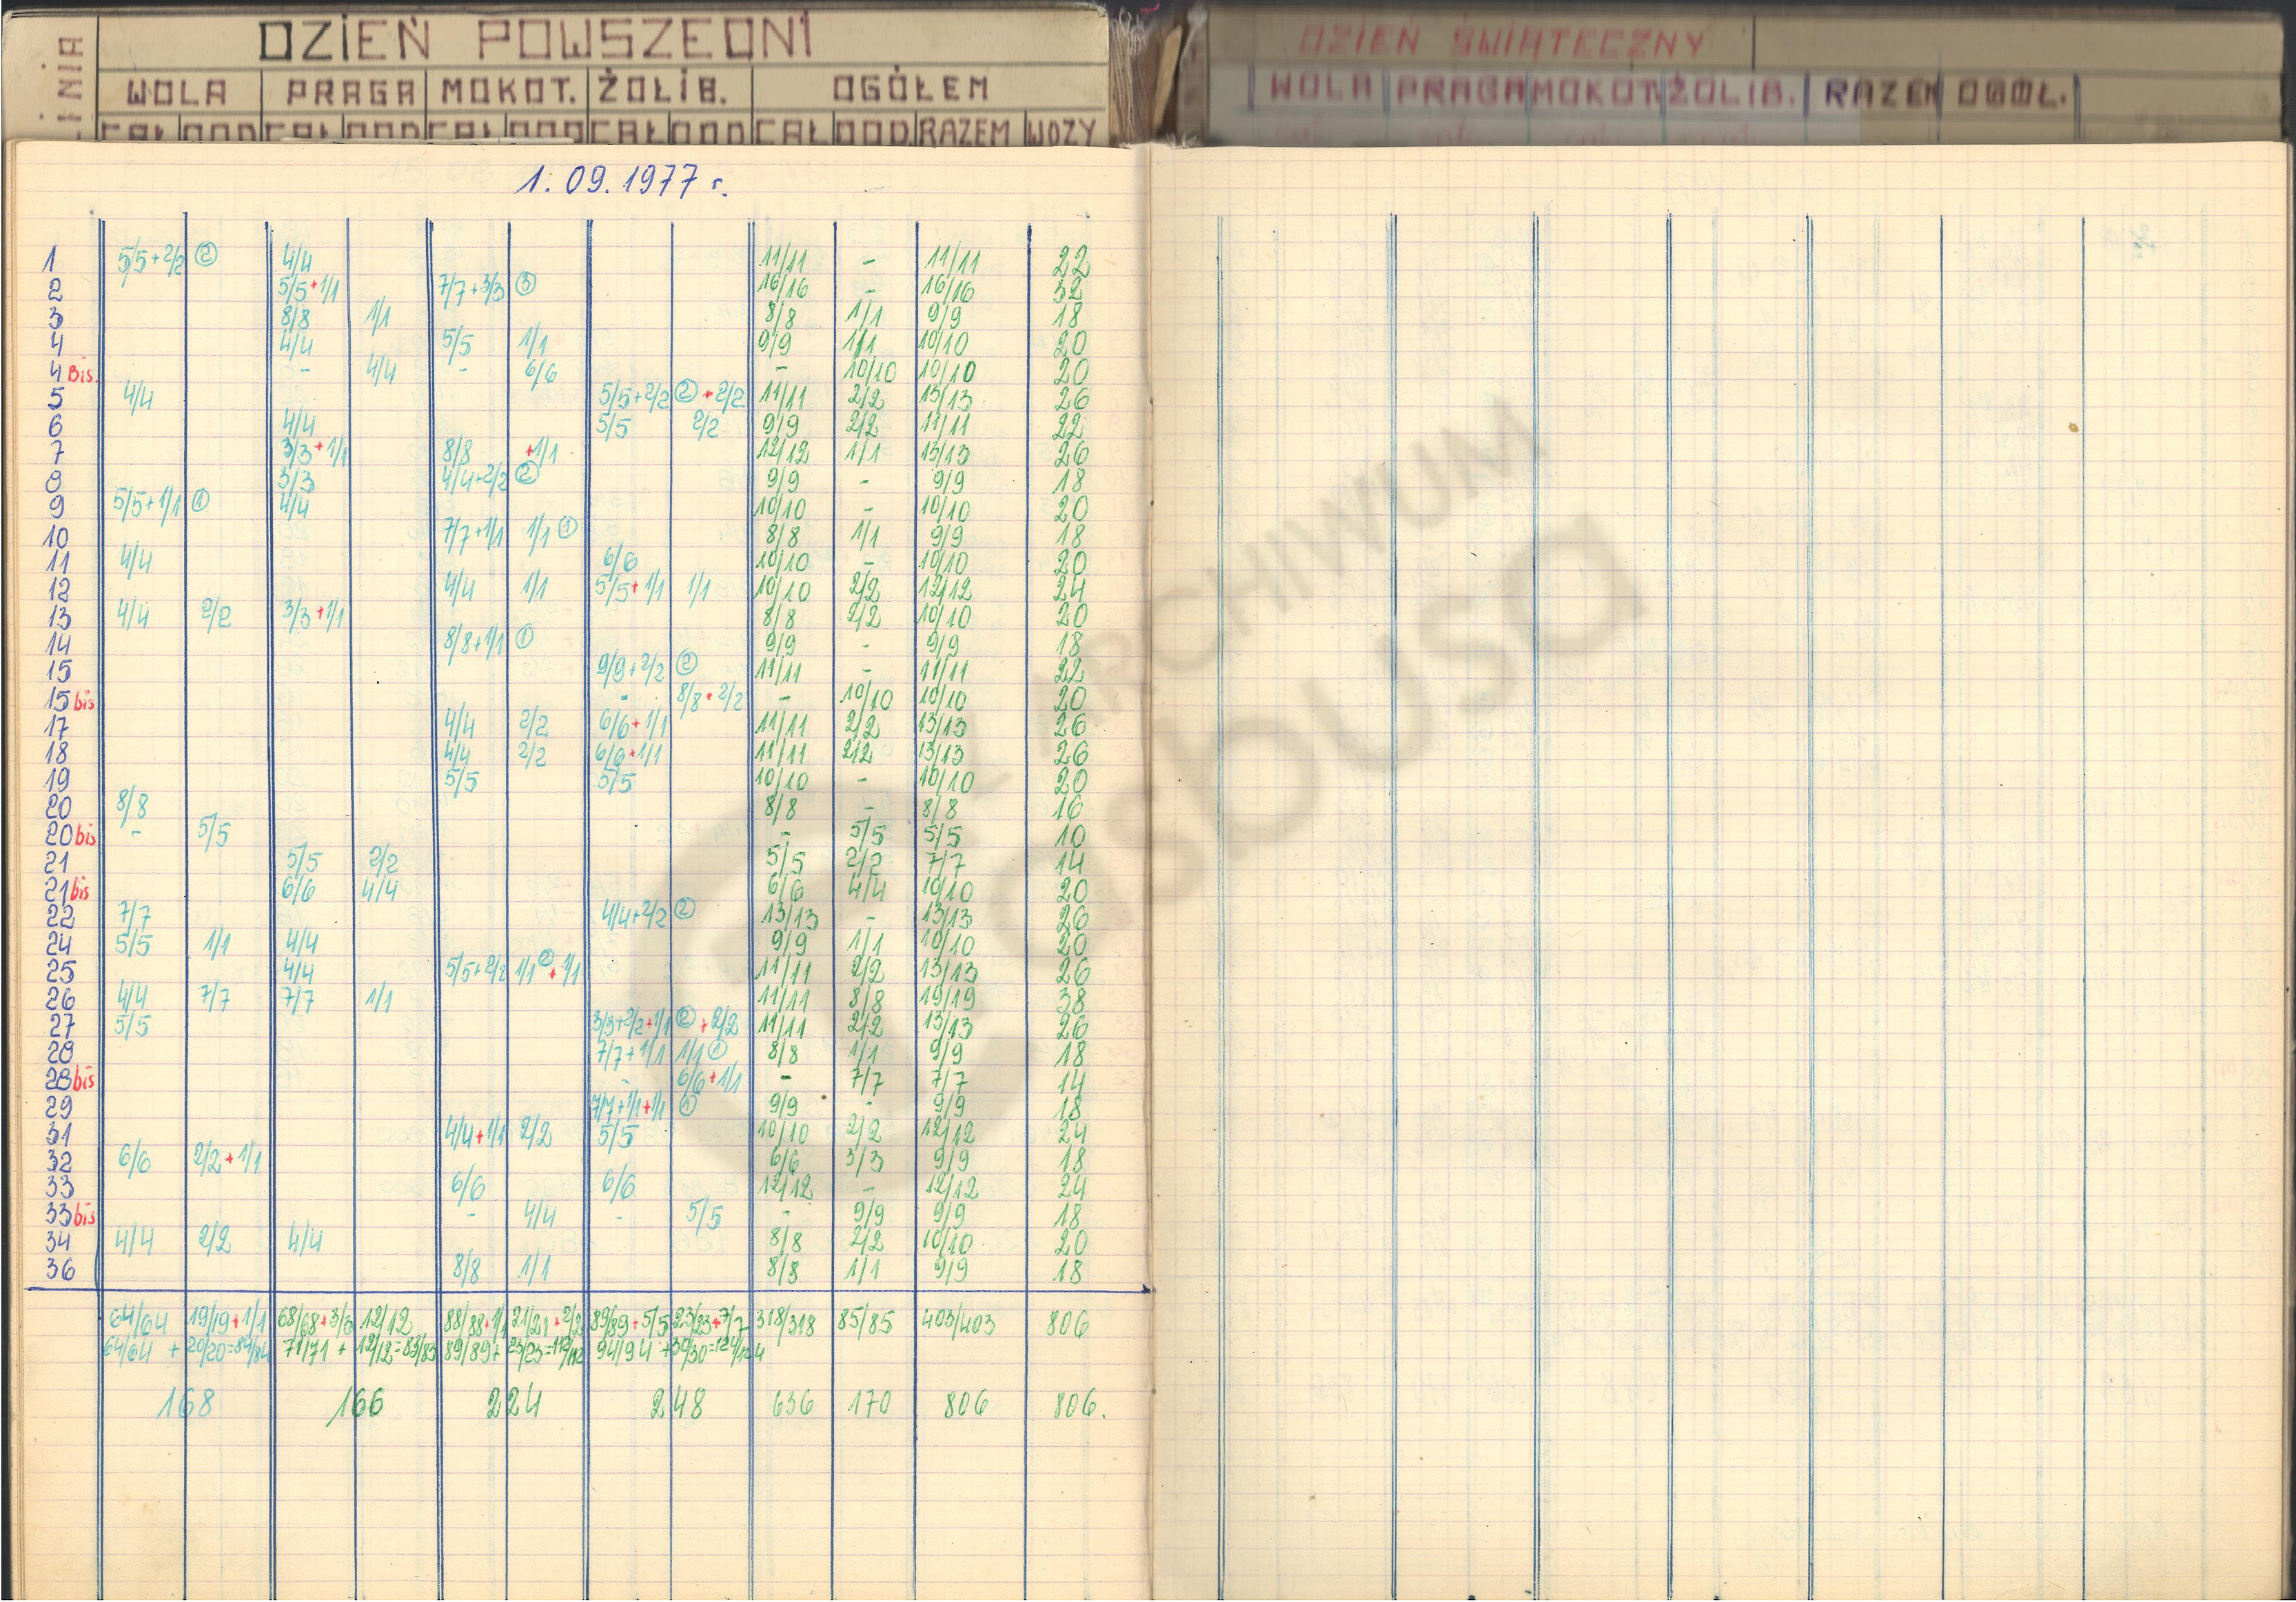 DZIEŃ POWSZEDNI
LINIA
WOLA PRAGA MOKOT. ŻOLIB. OGÓŁEM
CAŁ DOD CAŁ DOD CAŁ DOD CAŁ DOD CAŁ DOD. RAZEM WOZY
DZIEŃ ŚWIĄTECZNY
WOLA PRAGA MOKOT. ŻOLIB. RAZEM OGÓŁ.
1.09.1977 r.
1 5/5+2/2 ② 4/4 11/11 - 11/11 22
2 5/5+1/1 7/7+3/3 ③ 16/16 - 16/16 32
3 8/8 1/1 8/8 1/1 9/9 18
4 4/4 5/5 1/1 9/9 1/1 10/10 20
4 Bis. - 4/4 - 6/6 - 10/10 10/10 20
5 4/4 5/5+2/2 ②+2/2 11/11 2/2 13/13 26
6 4/4 5/5 2/2 9/9 2/2 11/11 22
7 3/3+1/1 8/8 +1/1 12/12 1/1 13/13 26
8 3/3 4/4+2/2 ② 9/9 - 9/9 18
9 5/5+1/1 ① 4/4 10/10 - 10/10 20
10 7/7+1/1 1/1 ① 8/8 1/1 9/9 18
11 4/4 6/6 10/10 - 10/10 20
12 4/4 1/1 5/5+1/1 1/1 10/10 2/2 12/12 24
13 4/4 2/2 3/3+1/1 8/8 2/2 10/10 20
14 8/8+1/1 ① 9/9 - 9/9 18
15 9/9+2/2 ② 11/11 - 11/11 22
15 bis - 8/8+2/2 - 10/10 10/10 20
17 4/4 2/2 6/6+1/1 11/11 2/2 13/13 26
18 4/4 2/2 6/6+1/1 11/11 2/2 13/13 26
19 5/5 5/5 10/10 - 10/10 20
20 8/8 8/8 - 8/8 16
20 bis - 5/5 - 5/5 5/5 10
21 5/5 2/2 5/5 2/2 7/7 14
21 bis 6/6 4/4 6/6 4/4 10/10 20
22 7/7 4/4+2/2 ② 13/13 - 13/13 26
24 5/5 1/1 4/4 9/9 1/1 10/10 20
25 4/4 5/5+2/2 1/1 ②+1/1 11/11 2/2 13/13 26
26 4/4 7/7 7/7 1/1 11/11 8/8 19/19 38
27 5/5 3/3+2/2+1/1 ②+2/2 11/11 2/2 13/13 26
28 7/7+1/1 1/1 ① 8/8 1/1 9/9 18
28 bis - 6/6+1/1 - 7/7 7/7 14
29 7/7+1/1+1/1 ① 9/9 - 9/9 18
31 4/4+1/1 2/2 5/5 10/10 2/2 12/12 24
32 6/6 2/2+1/1 6/6 3/3 9/9 18
33 6/6 6/6 12/12 - 12/12 24
33 bis - 4/4 - 5/5 - 9/9 9/9 18
34 4/4 2/2 4/4 8/8 2/2 10/10 20
36 8/8 1/1 8/8 1/1 9/9 18
64/64 19/19+1/1 68/68+3/3 12/12 88/88+1/1 21/21+2/2 89/89+5/5 23/23+7/7 318/318 85/85 403/403 806
64/64 + 20/20=84/84 71/71 + 12/12=83/83 89/89+ 23/23=112/112 94/94 +30/30=124/124
168 166 224 248 636 170 806 806.
ARCHIWUM